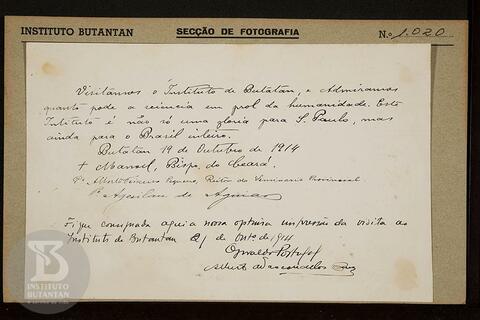 INSTITUTO BUTANTAN SECÇÃO DE FOTOGRAFIA N.º 1.020
Visitámos o Instituto de Butatan, e Admiramos
quanto pode a sciencia em prol da humanidade. Este
Intituto é não só uma gloria para S. Paulo, mas
ainda para o Brasil inteiro.
Butatan 19 de Outubro de 1914
+ Manoel, Bispo do Ceará.
Pe Alberto Pequeno, Reitor do Seminario Provincial
Pe de Aguiar
Fique consignada aqui a nossa optima impressão da visita ao
Instituto de Butantan 21 de Outo de 1914
Oswaldo Portugal
Alberto de Vasconcellos
INSTITUTO
BUTANTAN